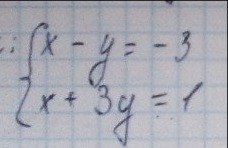 x - y = -3
x + 3y = 1